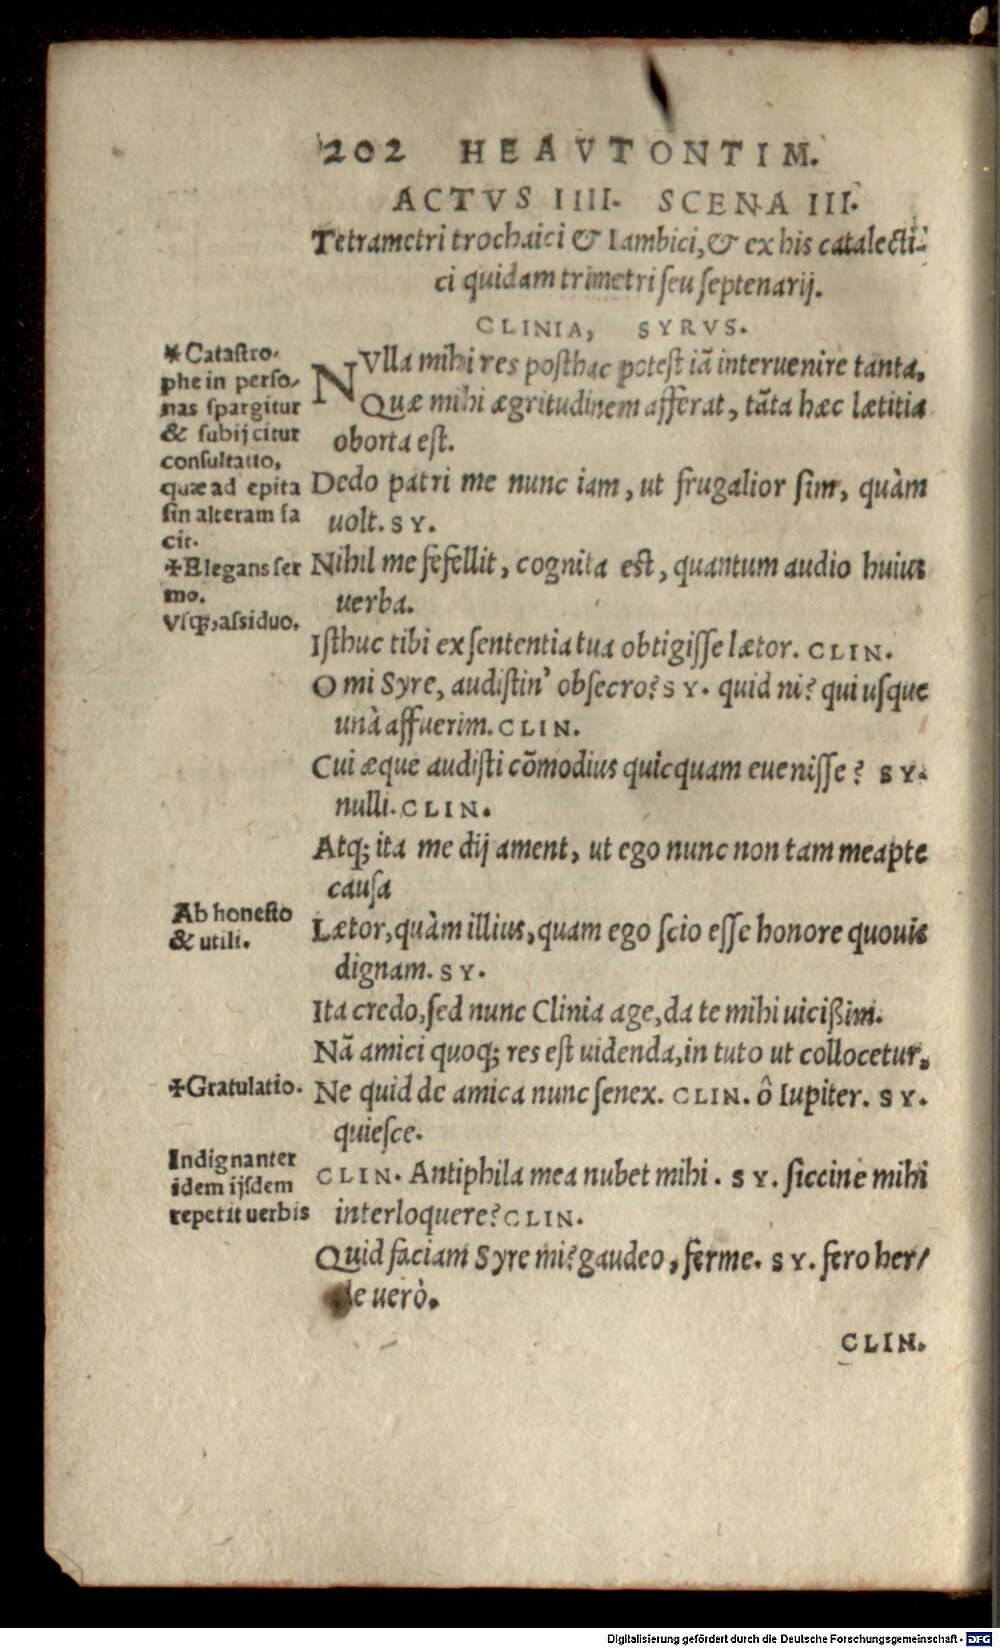 202 HEAVTONTIM.
ACTVS IIII. SCENA III.
Tetrametri trochaici & Iambici, & ex his catalecti-
ci quidam trimetri seu septenarij.
CLINIA, SYRVS.
NVlla mihi res posthac potest iã interuenire tanta,
Quæ mihi ægritudinem afferat, tãta hæc lætitia
oborta est.
Dedo patri me nunc iam, ut frugalior sim, quàm
uolt. SY.
Nihil me fefellit, cognita est, quantum audio huius
uerba.
Isthuc tibi ex sententia tua obtigisse lætor. CLIN.
O mi Syre, audistin' obsecro? SY. quid ni? qui usque
unà affuerim. CLIN.
Cui æque audisti cõmodius quicquam euenisse? SY.
nulli. CLIN.
Atq; ita me dij ament, ut ego nunc non tam meapte
causa
Lætor, quàm illius, quam ego scio esse honore quouis
dignam. SY.
Ita credo, sed nunc Clinia age, da te mihi uicißim.
Nã amici quoq; res est uidenda, in tuto ut collocetur.
Ne quid de amica nunc senex. CLIN. ô Iupiter. SY.
quiesce.
CLIN. Antiphila mea nubet mihi. SY. siccine mihi
interloquere? CLIN.
Quid faciam Syre mi? gaudeo, ferme. SY. fero her/
le uerò.
CLIN.
*Catastro-
phe in perso/
nas spargitur
& subijcitur
consultatio,
quæ ad epita
sin alteram fa
cit.
✠Elegans ser
mo.
Vsq;, assiduo.
Ab honesto
& utili.
✠Gratulatio.
Indignanter
idem ijsdem
repetit uerbis
Digitalisierung gefördert durch die Deutsche Forschungsgemeinschaft - DFG